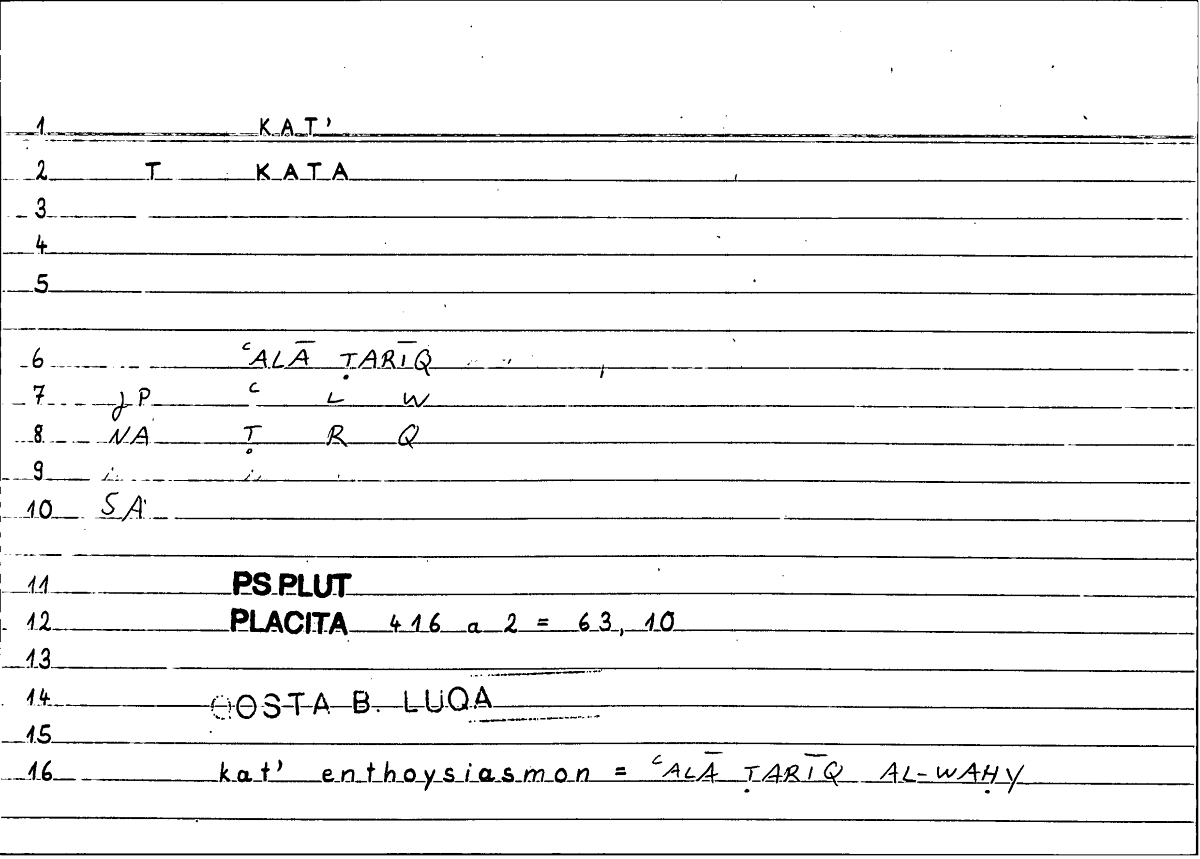 1 KAT'
2 T KATA
3
4
5
6 ʿALĀ ṬARĪQ
7 JP ʿ L W
8 NA Ṭ R Q
9
10 SA
11 PS.PLUT
12 PLACITA 416 a 2 = 63, 10
13
14 QOSTA B. LUQA
15
16 kat' enthoysiasmon = ʿALĀ ṬARĪQ AL-WAḤY